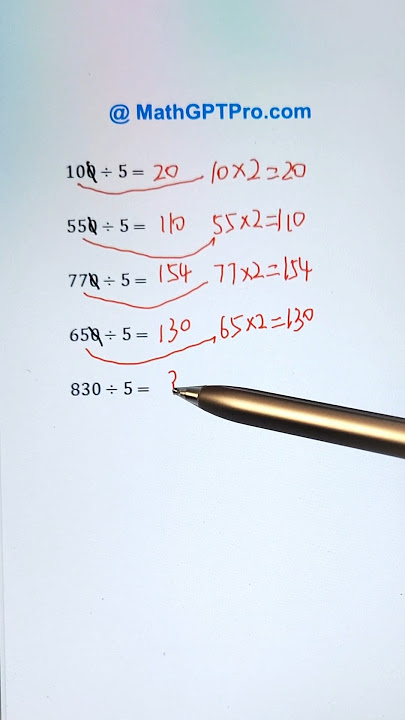 @ MathGPTPro.com
100 ÷ 5 = 20 10×2=20
550 ÷ 5 = 110 55×2=110
770 ÷ 5 = 154 77×2=154
650 ÷ 5 = 130 65×2=130
830 ÷ 5 = ?